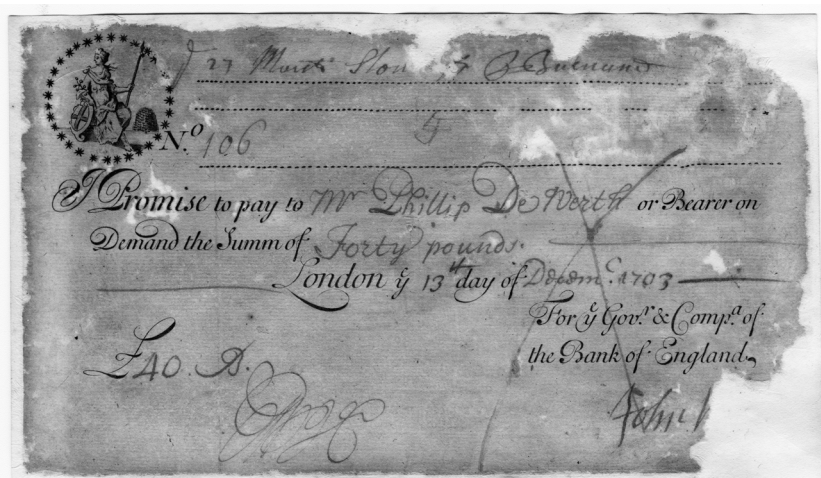 27
No. 106
I Promise to pay to Mr Phillip De Werth or Bearer on
Demand the Summ of Forty pounds.
London ye 13th day of Decemr. 1703
For ye Govr. & Compa. of
the Bank of England
£40. D.
John